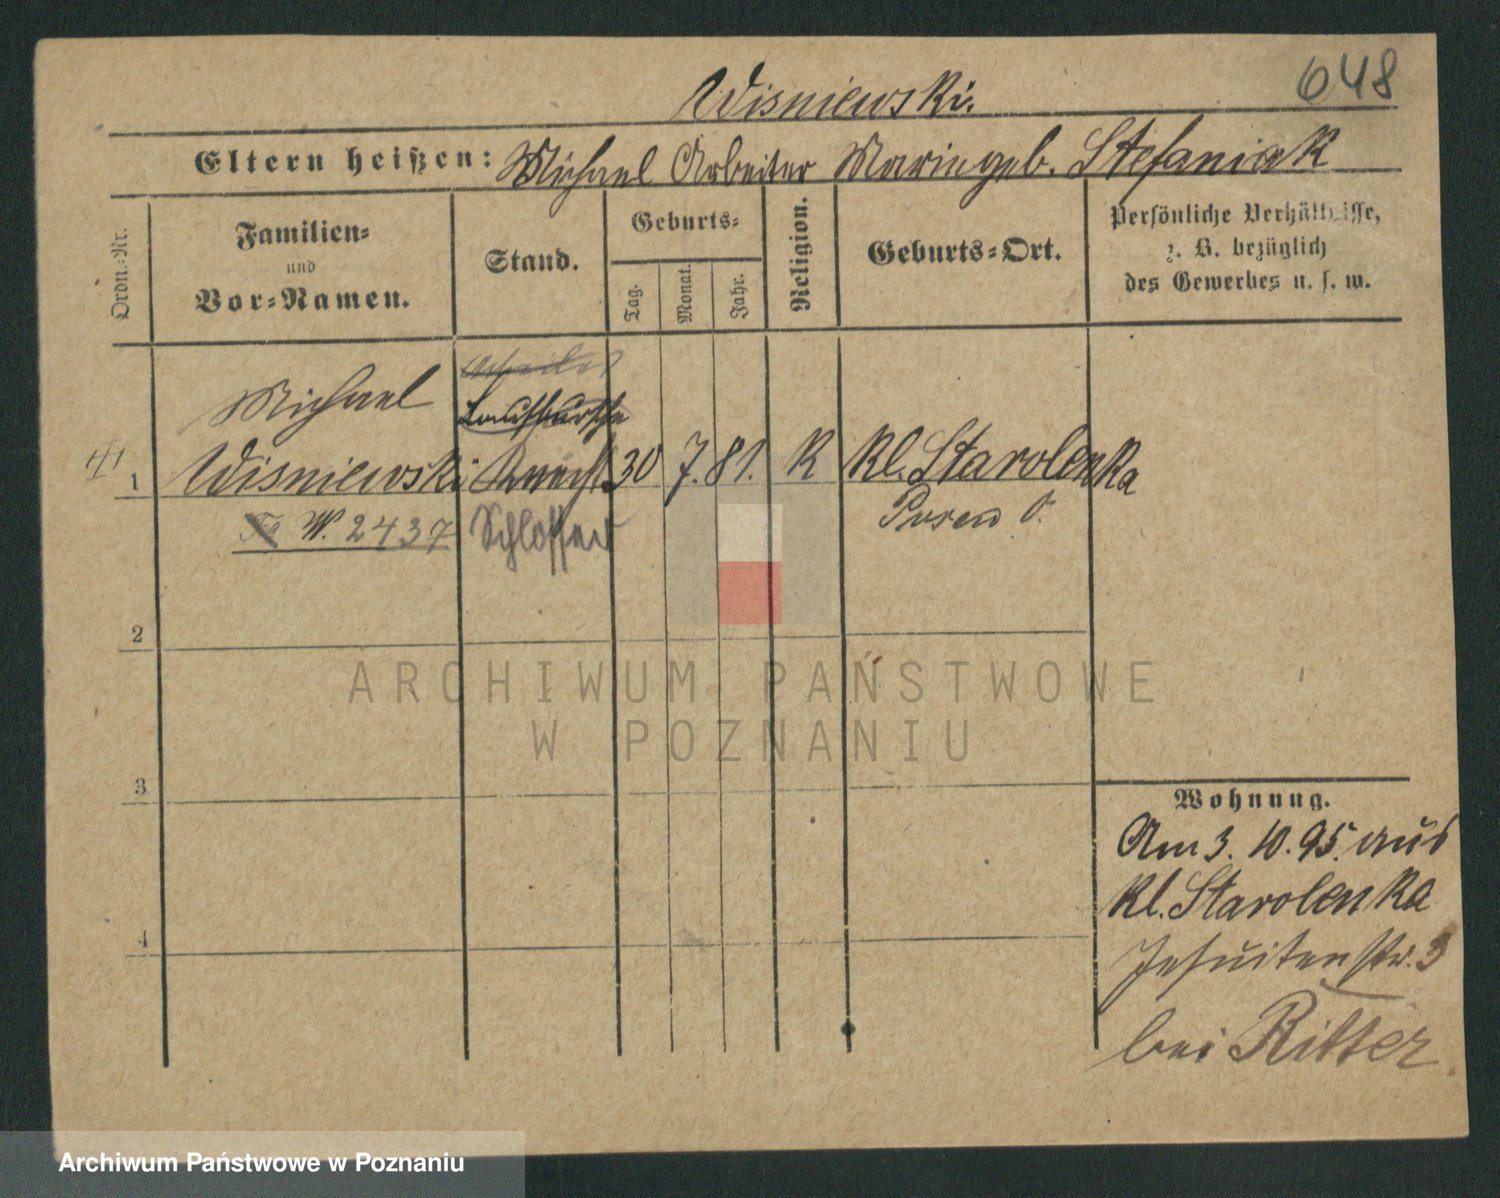 648
Wisniewski.
Eltern heißen: Michael Arbeiter Marie geb. Stefaniak
Ordn.-Nr.
Familien-
und
Vor-Namen.
Stand.
Geburts-
Tag.
Monat.
Jahr.
Religion.
Geburts-Ort.
Persönliche Verhältnisse,
z. B. bezüglich
des Gewerbes u. s. w.
Arbeiter
Michael Laufbursche
1 Wisniewski Knecht 30 7. 81. K Kl. Starolenka
W. 2437 Schlosser Posen O.
2
3
4
Wohnung.
Am 3. 10. 95. aus
Kl. Starolenka
Jesuitenstr. 3
bei Ritter
ARCHIWUM PAŃSTWOWE
W POZNANIU
Archiwum Państwowe w Poznaniu